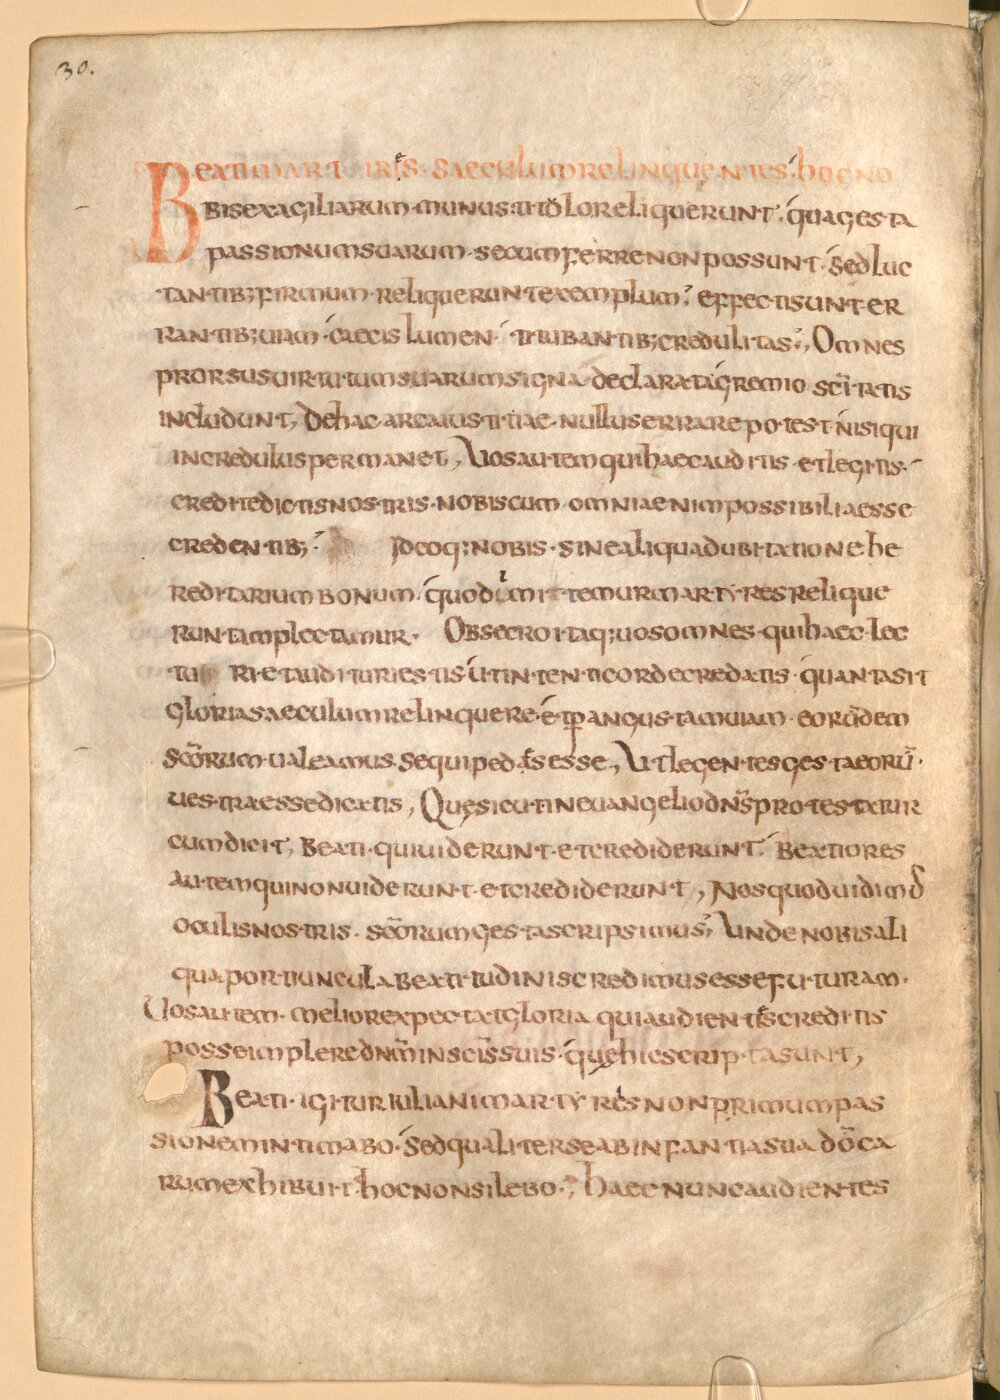 30.
Beati martires · saeculum relinquentes · hoc no
bis exagiliarum · munus · titolo reliquerunt · qua gesta
passionum suarum · secum ferre non possunt · sed luc
tantib; firmum · reliquerunt exemplum · effecti sunt er
rantib; uiam · caecis lumen · titubantib; credulitas ·, Omnes
prorsus uirtutum suarum signa declarata gremio sc̄itatis
includunt, De hac arca iustitiae · nullus errare potest nisi qui
incredulus permanet, Uos autem qui haec auditis · et legitis ·
credite dictis nostris · nobiscum · omnia enim possibilia esse
credentib; · Ideoq; nobis · sine aliqua dubitatione he
reditarium bonum · quod dimittemur martyres relique
runt amplectamur · Obsecro itaq; uos omnes · qui haec lec
tu ri et audituri estis ut intenti corde credatis · quanta sit
gloria saeculum relinquere · et p angustam uiam · eorūdem
sc̄ōrum ualeamus sequipedes esse, Ut legentes gesta eorū ·
uestra esse dicatis, Quę sicut in euangelio dn̄s protestatur
cum dicit, Beati · qui uiderunt · et crediderunt · Beatiores
autem qui non uiderunt · et crediderunt, Nos quod uidim
oculis nostris · sc̄ōrum gesta scripsimus; Unde nobis ali
qua portiuncula beatitudinis credimus esse futuram ·
Uos autem · melior expectat gloria quia audientes creditis
posse implere dn̄m in sc̄īs suis · quę hic scripta sunt,
Beati · igitur iuliani martyres non primum pas
sionem intimabo · sed qualiter se ab infantia sua dō ca
rum exhibuit · hoc non silebo ·, haec nunc audientes